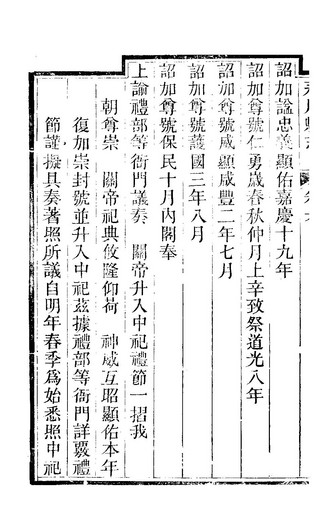 詔加諡忠義顯佑嘉慶十九年
詔加尊號仁勇歲春秋仲月上辛致祭道光八年
詔加尊號威顯咸豐二年七月
詔加尊號護國三年八月
詔加尊號保民十月內閣奉
上諭禮部等衙門議奏　關帝升入中祀禮節一摺我
朝尊崇　關帝祀典攸隆仰荷　神威互昭顯佑本年
復加崇封號並升入中祀茲據禮部等衙門詳覈禮
節謹擬具奏著照所議自明年春季爲始悉照中祀